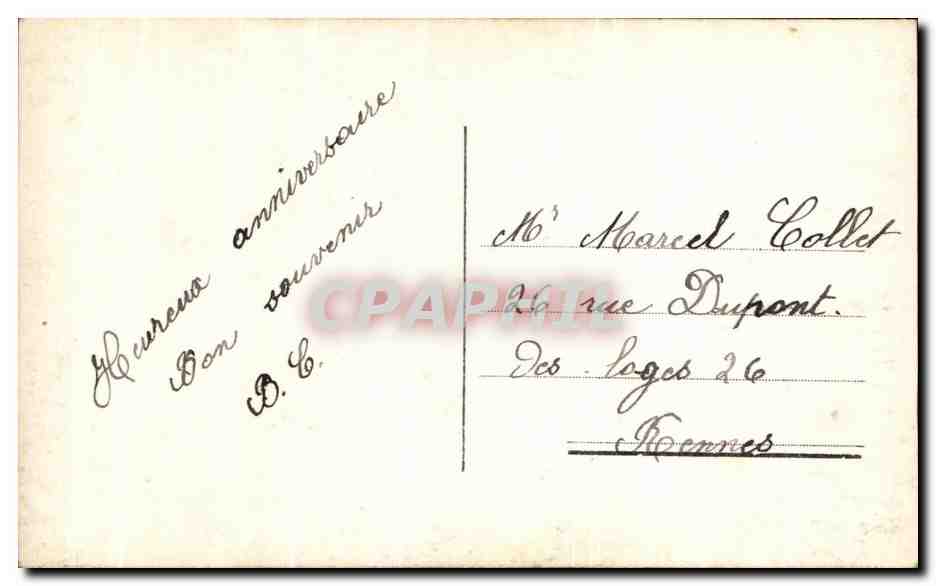 Heureux anniversaire
Bon souvenir
B. C.
Mr Marcel Collet
26 rue Dupont.
des loges 26
Rennes
CPAPHIL